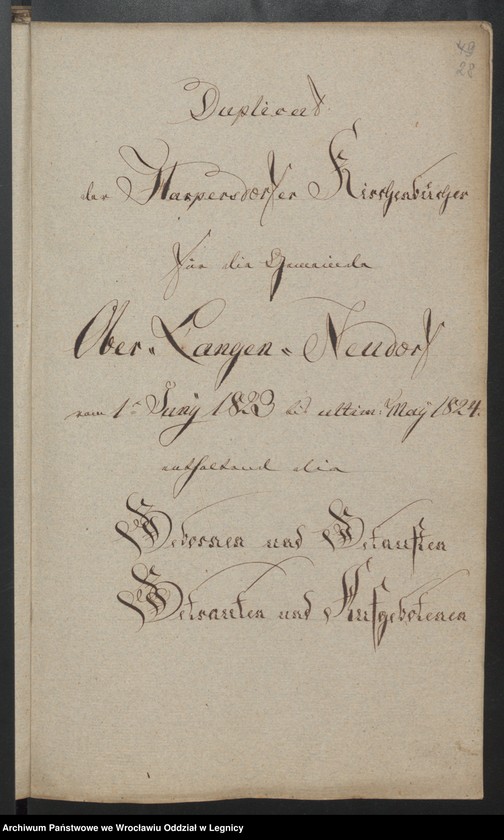 49
28
Duplicat
der Harpersdorfer Kirchenbücher
für die Gemeinde
Ober-Langen-Neudorf
vom 1t Juny 1823 bis ultim. May 1824.
enthaltend die
Gebornen und Getauften
Getrauten und Aufgebotenen
Archiwum Państwowe we Wrocławiu Oddział w Legnicy